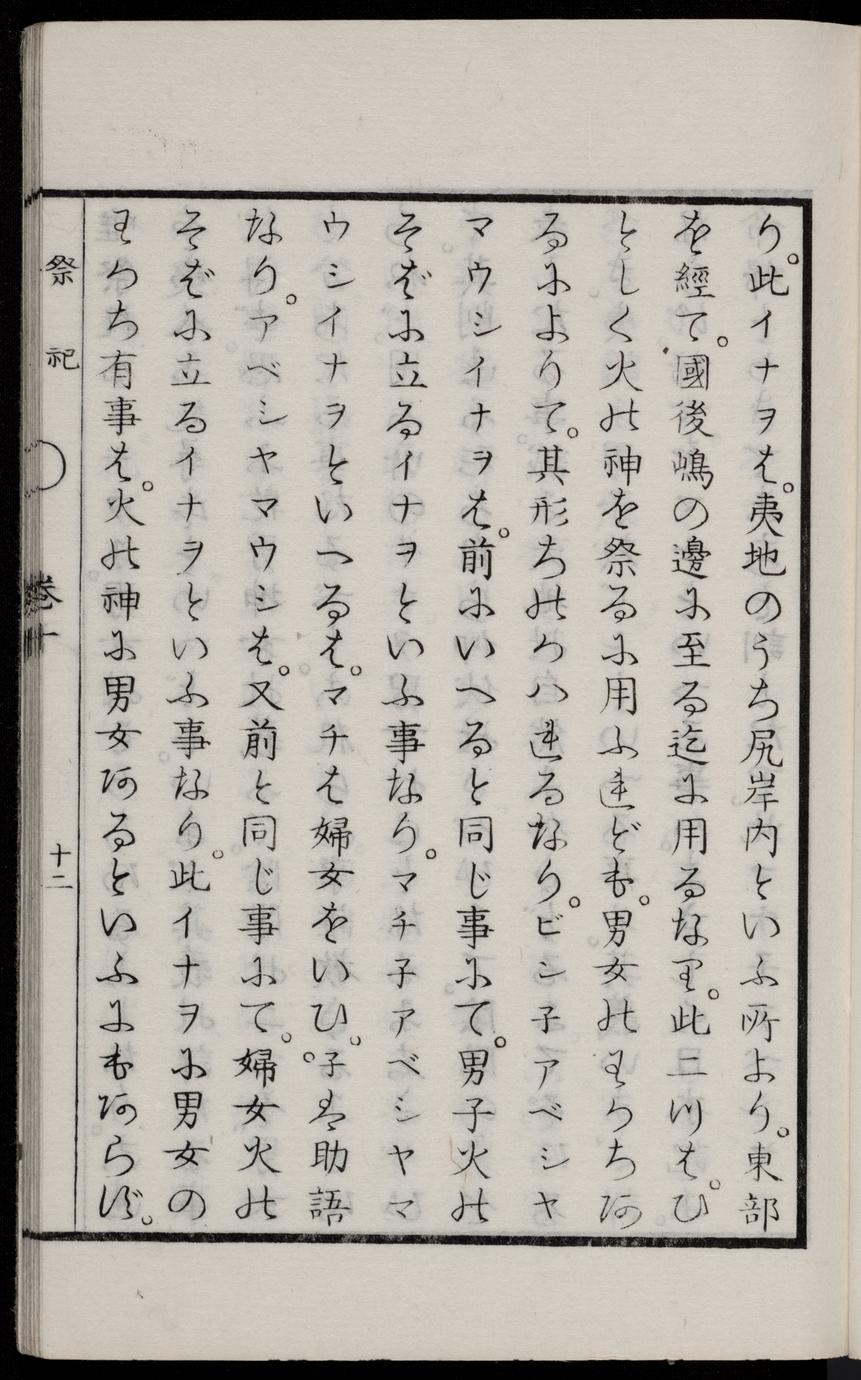 り。此イナヲは。夷地のうち尻岸内といふ所より。東部
を經て。國後嶋の邊に至る迄に用るなり。此二つは。ひ
としく火の神を祭るに用ふれども。男女のわかちあ
るによりて。其形ちのかハれるなり。ビシ子アベシヤ
マウシイナヲは。前にいへると同じ事にて。男子火の
そばに立るイナヲといふ事なり。マチ子アベシヤマ
ウシイナヲといへるは。マチは婦女をいひ。子は助語
なり。アベシヤマウシは。又前と同じ事にて。婦女火の
そばに立るイナヲといふ事なり。此イナヲに男女の
わかち有事は。火の神に男女あるといふにもあらず。
祭祀 卷十 十二